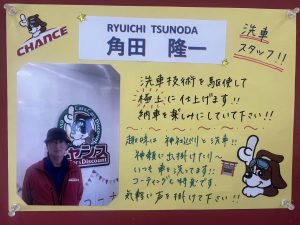 CHANCE
RYUICHI TSUNODA
角田 隆一
洗車
スタッフ!!
洗車技術を駆使して
極上に仕上げます!!
納車を楽しみにしていて下さい!!
趣味は 神社巡りと洗車!!
神社に出掛けたり〜
いつも車を洗ってます!!
コーティングも得意です。
気軽に声を掛けて下さい!!
チャンス
Discount
CHANCE